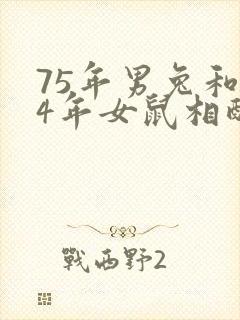 75年男兔和
4年女鼠相
戰西野2